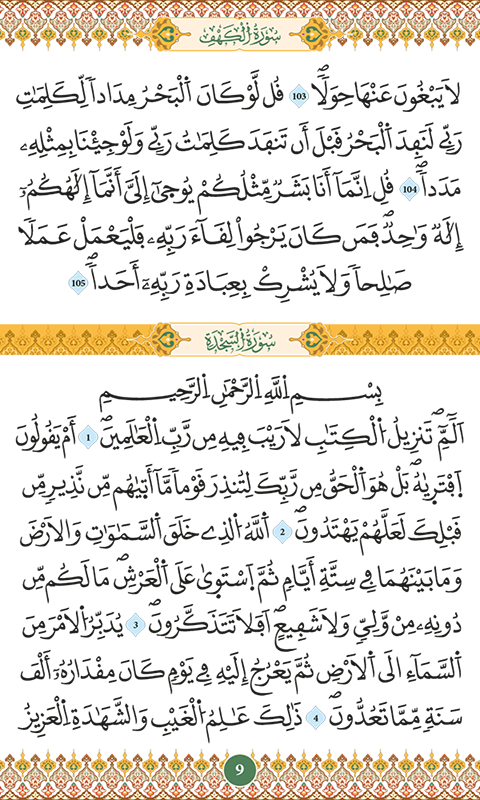 سُورَةُ الْكَهْفِ
لَا يَبْغُونَ عَنْهَا حِوَلاًۖ 103 قُل لَّوْ كَانَ اَ۬لْبَحْرُ مِدَاداٗ لِّكَلِمَٰتِ
رَبِّے لَنَفِدَ اَ۬لْبَحْرُ قَبْلَ أَن تَنفَدَ كَلِمَٰتُ رَبِّے وَلَوْ جِئْنَا بِمِثْلِهِۦ
مَدَداٗۖ 104 قُلِ اِنَّمَآ أَنَا بَشَرٞ مِّثْلُكُمْ يُوح۪يٰٓ إِلَيَّ أَنَّمَآ إِلَٰهُكُمُۥٓ
إِلَٰهٞ وَٰحِدٞۖ فَمَن كَانَ يَرْجُواْ لِقَآءَ رَبِّهِۦ فَلْيَعْمَلْ عَمَلاٗ
صَٰلِحاٗ وَلَا يُشْرِكْ بِعِبَادَةِ رَبِّهِۦٓ أَحَداٗۖ 105
سُورَةُ السَّجْدَةِ
بِسْمِ اِ۬للَّهِ اِ۬لرَّحْمَٰنِ اِ۬لرَّحِيمِ
أَلَٓمِّٓۖ تَنزِيلُ اُ۬لْكِتَٰبِ لَا رَيْبَ فِيهِ مِن رَّبِّ اِ۬لْعَٰلَمِينَۖ 1 أَمْ يَقُولُونَ
اَ۪فْتَر۪يٰهُۖ بَلْ هُوَ اَ۬لْحَقُّ مِن رَّبِّكَ لِتُنذِرَ قَوْماٗ مَّآ أَت۪يٰهُم مِّن نَّذِيرٖ مِّن
قَبْلِكَ لَعَلَّهُمْ يَهْتَدُونَۖ 2 اَ۬للَّهُ اُ۬لذِے خَلَقَ اَ۬لسَّمَٰوَٰتِ وَالَارْضَ
وَمَا بَيْنَهُمَا فِے سِتَّةِ أَيَّامٖ ثُمَّ اَ۪سْتَو۪يٰ عَلَي اَ۬لْعَرْشِۖ مَا لَكُم مِّن
دُونِهِۦ مِنْ وَّلِيّٖ وَلَا شَفِيعٍۖ اَفَلَا تَتَذَكَّرُونَۖ 3 يُدَبِّرُ اُ۬لَامْرَ مِنَ
اَ۬لسَّمَآءِ الَي اَ۬لَارْضِ ثُمَّ يَعْرُجُ إِلَيْهِ فِے يَوْمٖ كَانَ مِقْدَارُهُۥٓ أَلْفَ
سَنَةٖ مِّمَّا تَعُدُّونَۖ 4 ذَٰلِكَ عَٰلِمُ اُ۬لْغَيْبِ وَالشَّهَٰدَةِ اِ۬لْعَزِيزُ
9